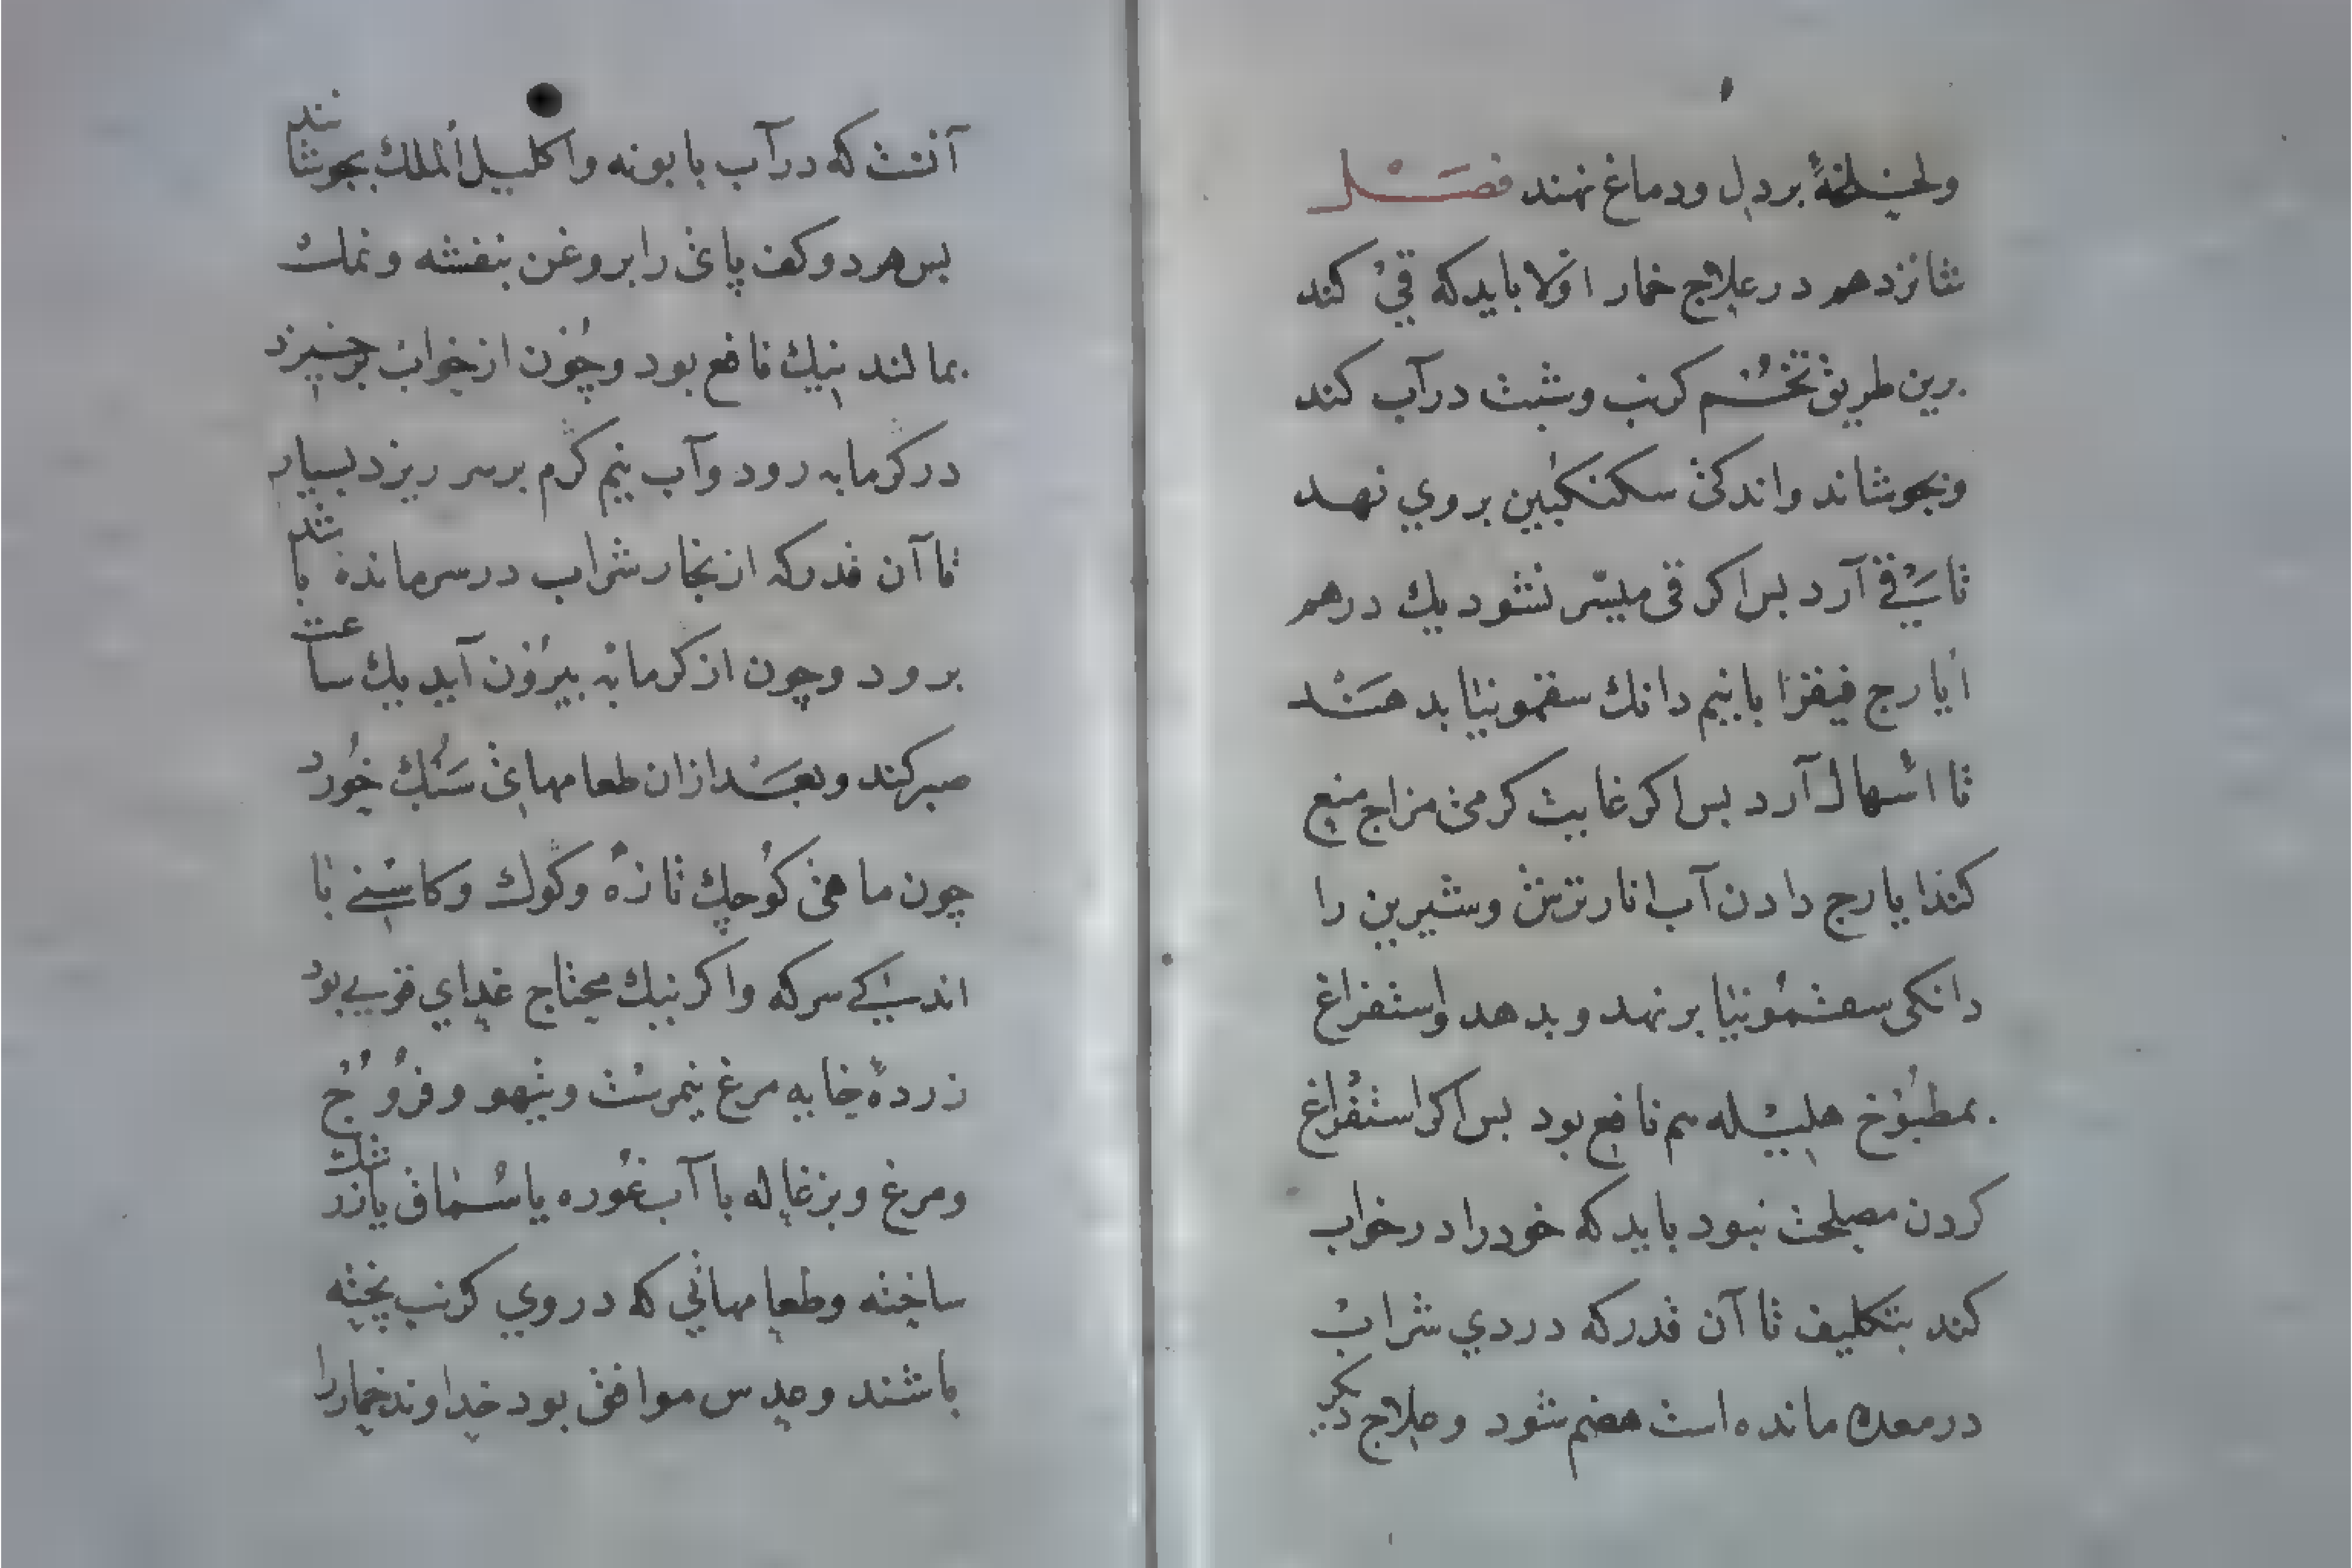 ولخلخهٔ بر دل و دماغ نهند فصل
شانزدهم در علاج خمار اوّلا بايد که قي کند
برين طريق تخم کرنب وشبث درآب کند
وبجوشاند واندکی سکنکبين بروي نهد
تا قي آرد بس اکر قی ميسّر نشود يك درهم
ايارج فيقرا با نيم دانك سقمونيا بدهند
تا اسهال آرد بس اکر غايت کرمی مزاج منع
کند ايارج دادن آب انار ترش وشيرين را
دانکی سقمونيا برنهد وبدهد واستفراغ
بمطبوخ هليله هم نافع بود بس اکر استفراغ
کردن مصلحت نبود بايد که خود را در خواب
کند بتکليف تا آن قدر که دردي شراب
در معده مانده است هضم شود وعلاج ديکر
آنست که درآب بابونه واکليل الملك بجوشانند
بس هر دو کف پای را بروغن بنفشه ونمك
بمالند نيك نافع بود وچون از خواب برخيزد
در کرمابه رود وآب نيم کرم بر سر ريزد بسيار
تا آن قدر که از بخار شراب در سر مانده باشد
برود وچون از کرمابه بيرون آيد يك ساعت
صبر کند وبعد ازان طعامهای سبك خورد
چون ماهی کوچك تازه وکوك وکاسني با
اندکي سرکه واکر نيك محتاج غداي قويي بود
زردهٔ خايه مرغ نيمرشت وتيهو وفروج
ومرغ وبزغاله با آب غوره يا سماق يا زرشك
ساخته وطعامهائي که دروي کرنب پخته
باشند وعدس موافق بود خداوند خمار را